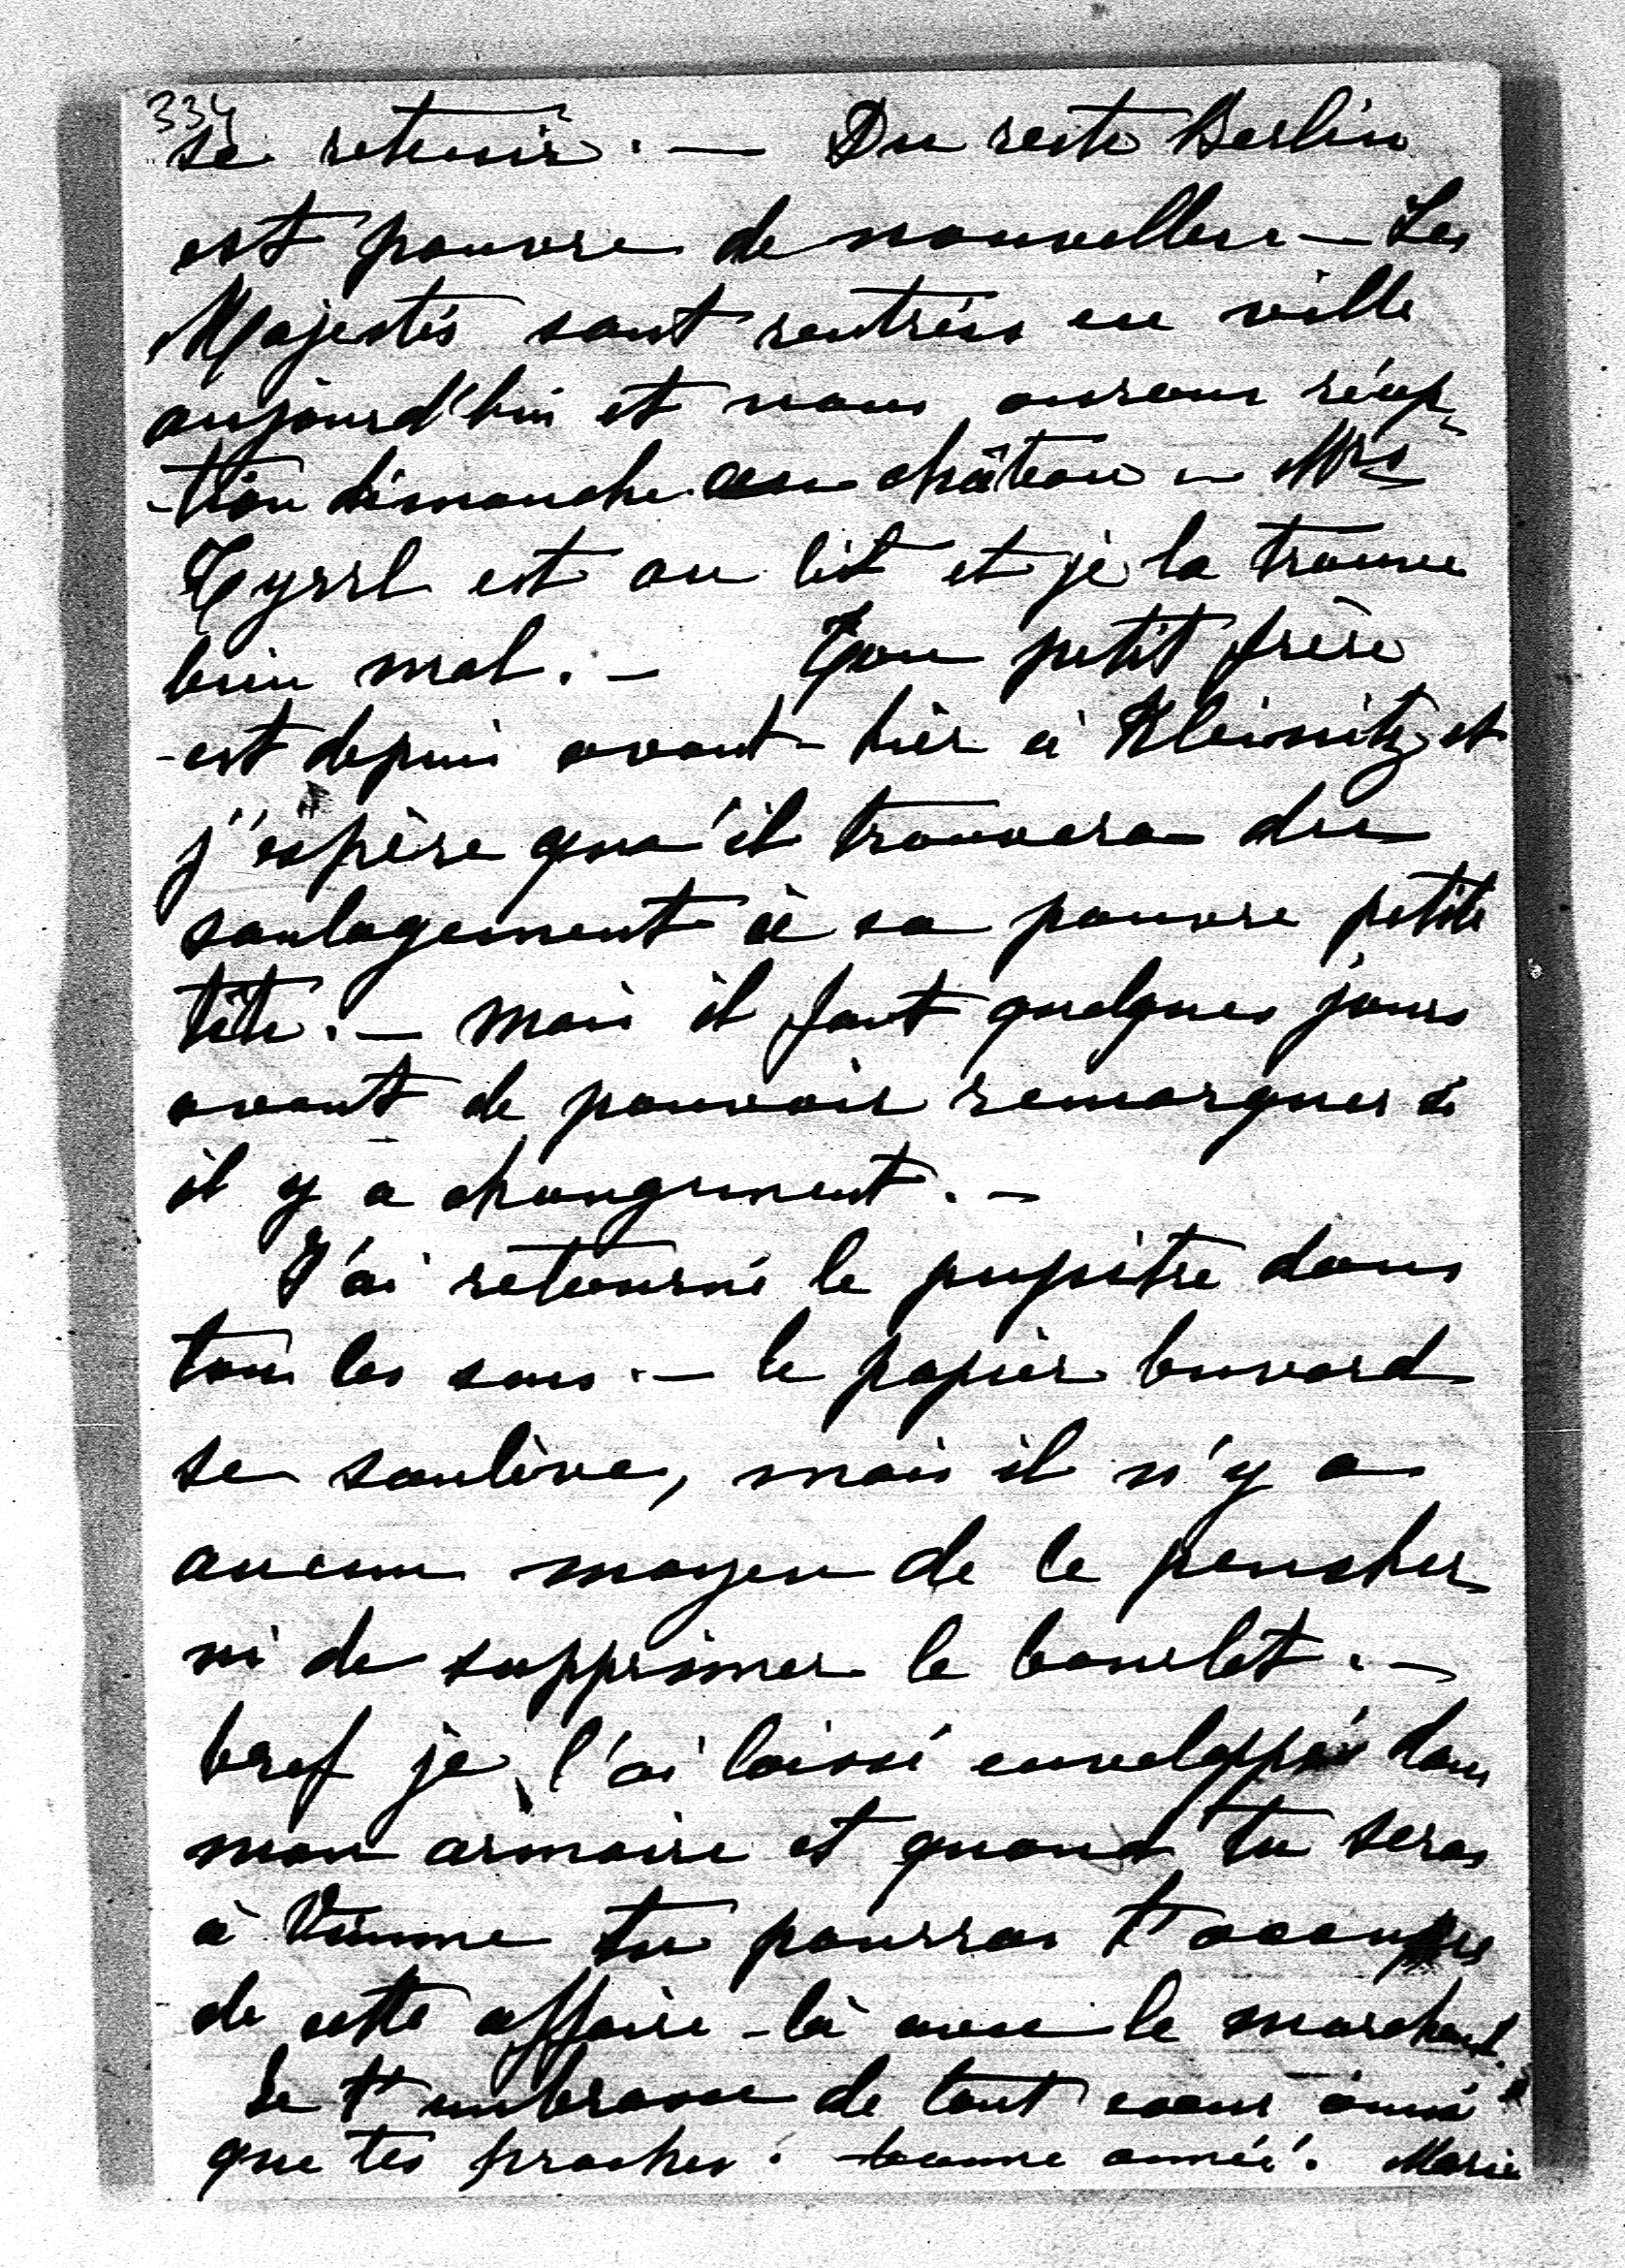 334
se retenir. — Du reste Berlin
est pauvre de nouvelles — Les
Majestés sont rentrées en ville
aujourd'hui et nous aurons récep
-tion dimanche au château — Mrs
Tyrrl est au lit et je la trouve
bien mal. — Ton petit frère
est depuis avant-hier à Kleinitz et
j'espère qu'il trouvera du
soulagement à sa pauvre petite
tête. — Mais il faut quelques jours
avant de pouvoir remarquer si
il y a changement. —
J'ai retourné le pupitre dans
tous les sens. — le papier buvard
se soulève, mais il n'y a
aucun moyen de le pencher
ni de supprimer le bourlet. —
bref je l'ai laissé enveloppé dans
mon armoire et quand tu seras
à Vienne tu pourras t'occuper
de cette affaire-là avec le marchand.
Je t'embrasse de tout coeur ainsi
que tes proches. bonne année. Marie